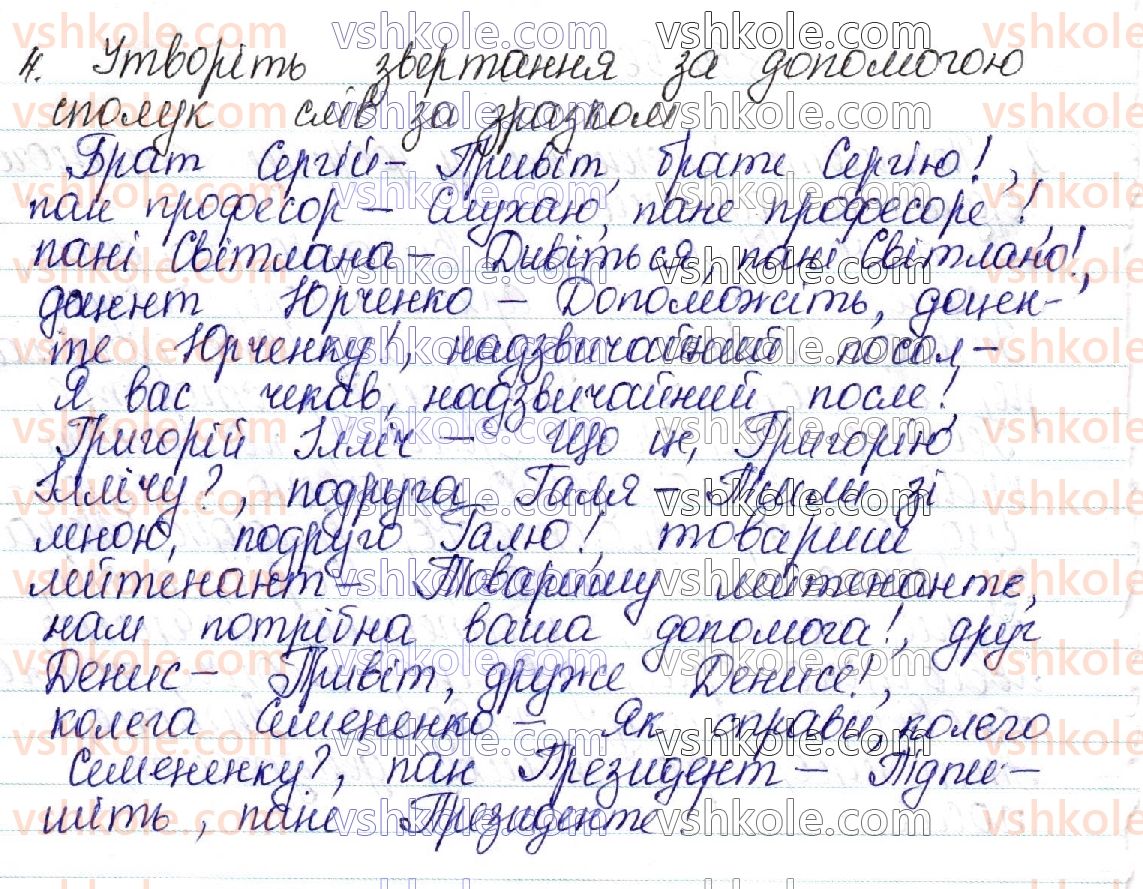 4. Утворіть звертання за допомогою
сполук слів за зразком
Брат Сергій – Привіт, брате Сергію!,
пан професор – Слухаю, пане професоре!,
пані Світлана – Дивіться, пані Світлано!,
доцент Юрченко – Допоможіть, доцен-
те Юрченку!, надзвичайний посол –
Я вас чекав, надзвичайний после!,
Григорій Ілліч – Що це, Григорію
Іллічу?, подруга Галя – зі
мною, подруго Галю!, товариш
лейтенант – Товаришу лейтенанте,
нам потрібна ваша допомога!, друг
Денис – Привіт, друже Денисе!,
колега Семененко – Як справи, колего
Семененку?, пан Президент – Підпи-
шіть, пане Президенте!